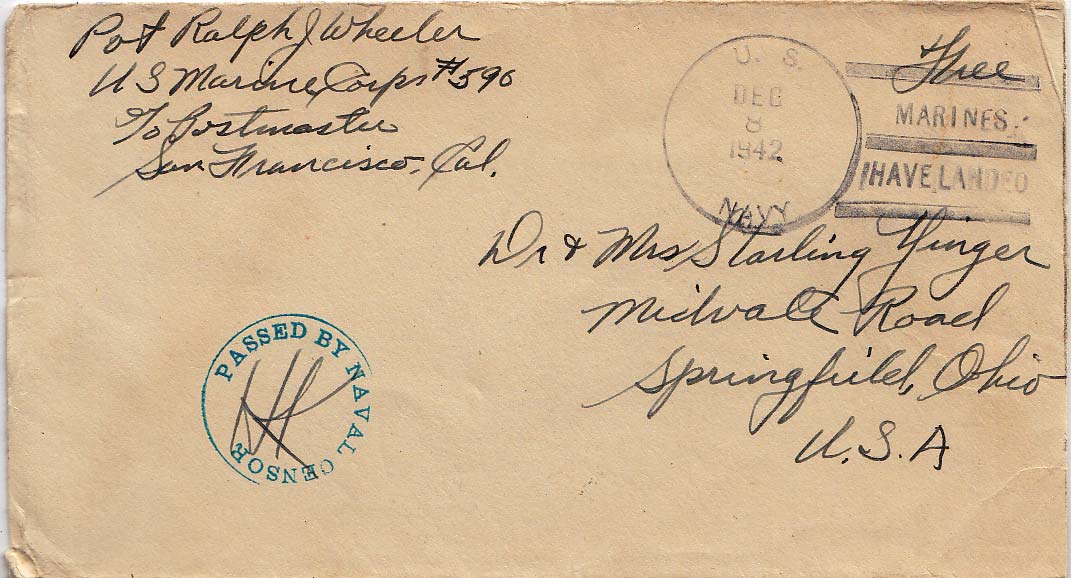 Pvt Ralph J Wheeler
U S Marine Corps #590
℅ Postmaster
San Francisco, Cal.
U. S.
DEC
8
1942
NAVY
Free
MARINES
HAVE LANDED
Dr & Mrs Starling Yinger
Midvale Road
Springfield, Ohio
U.S.A
PASSED BY NAVAL CENSOR